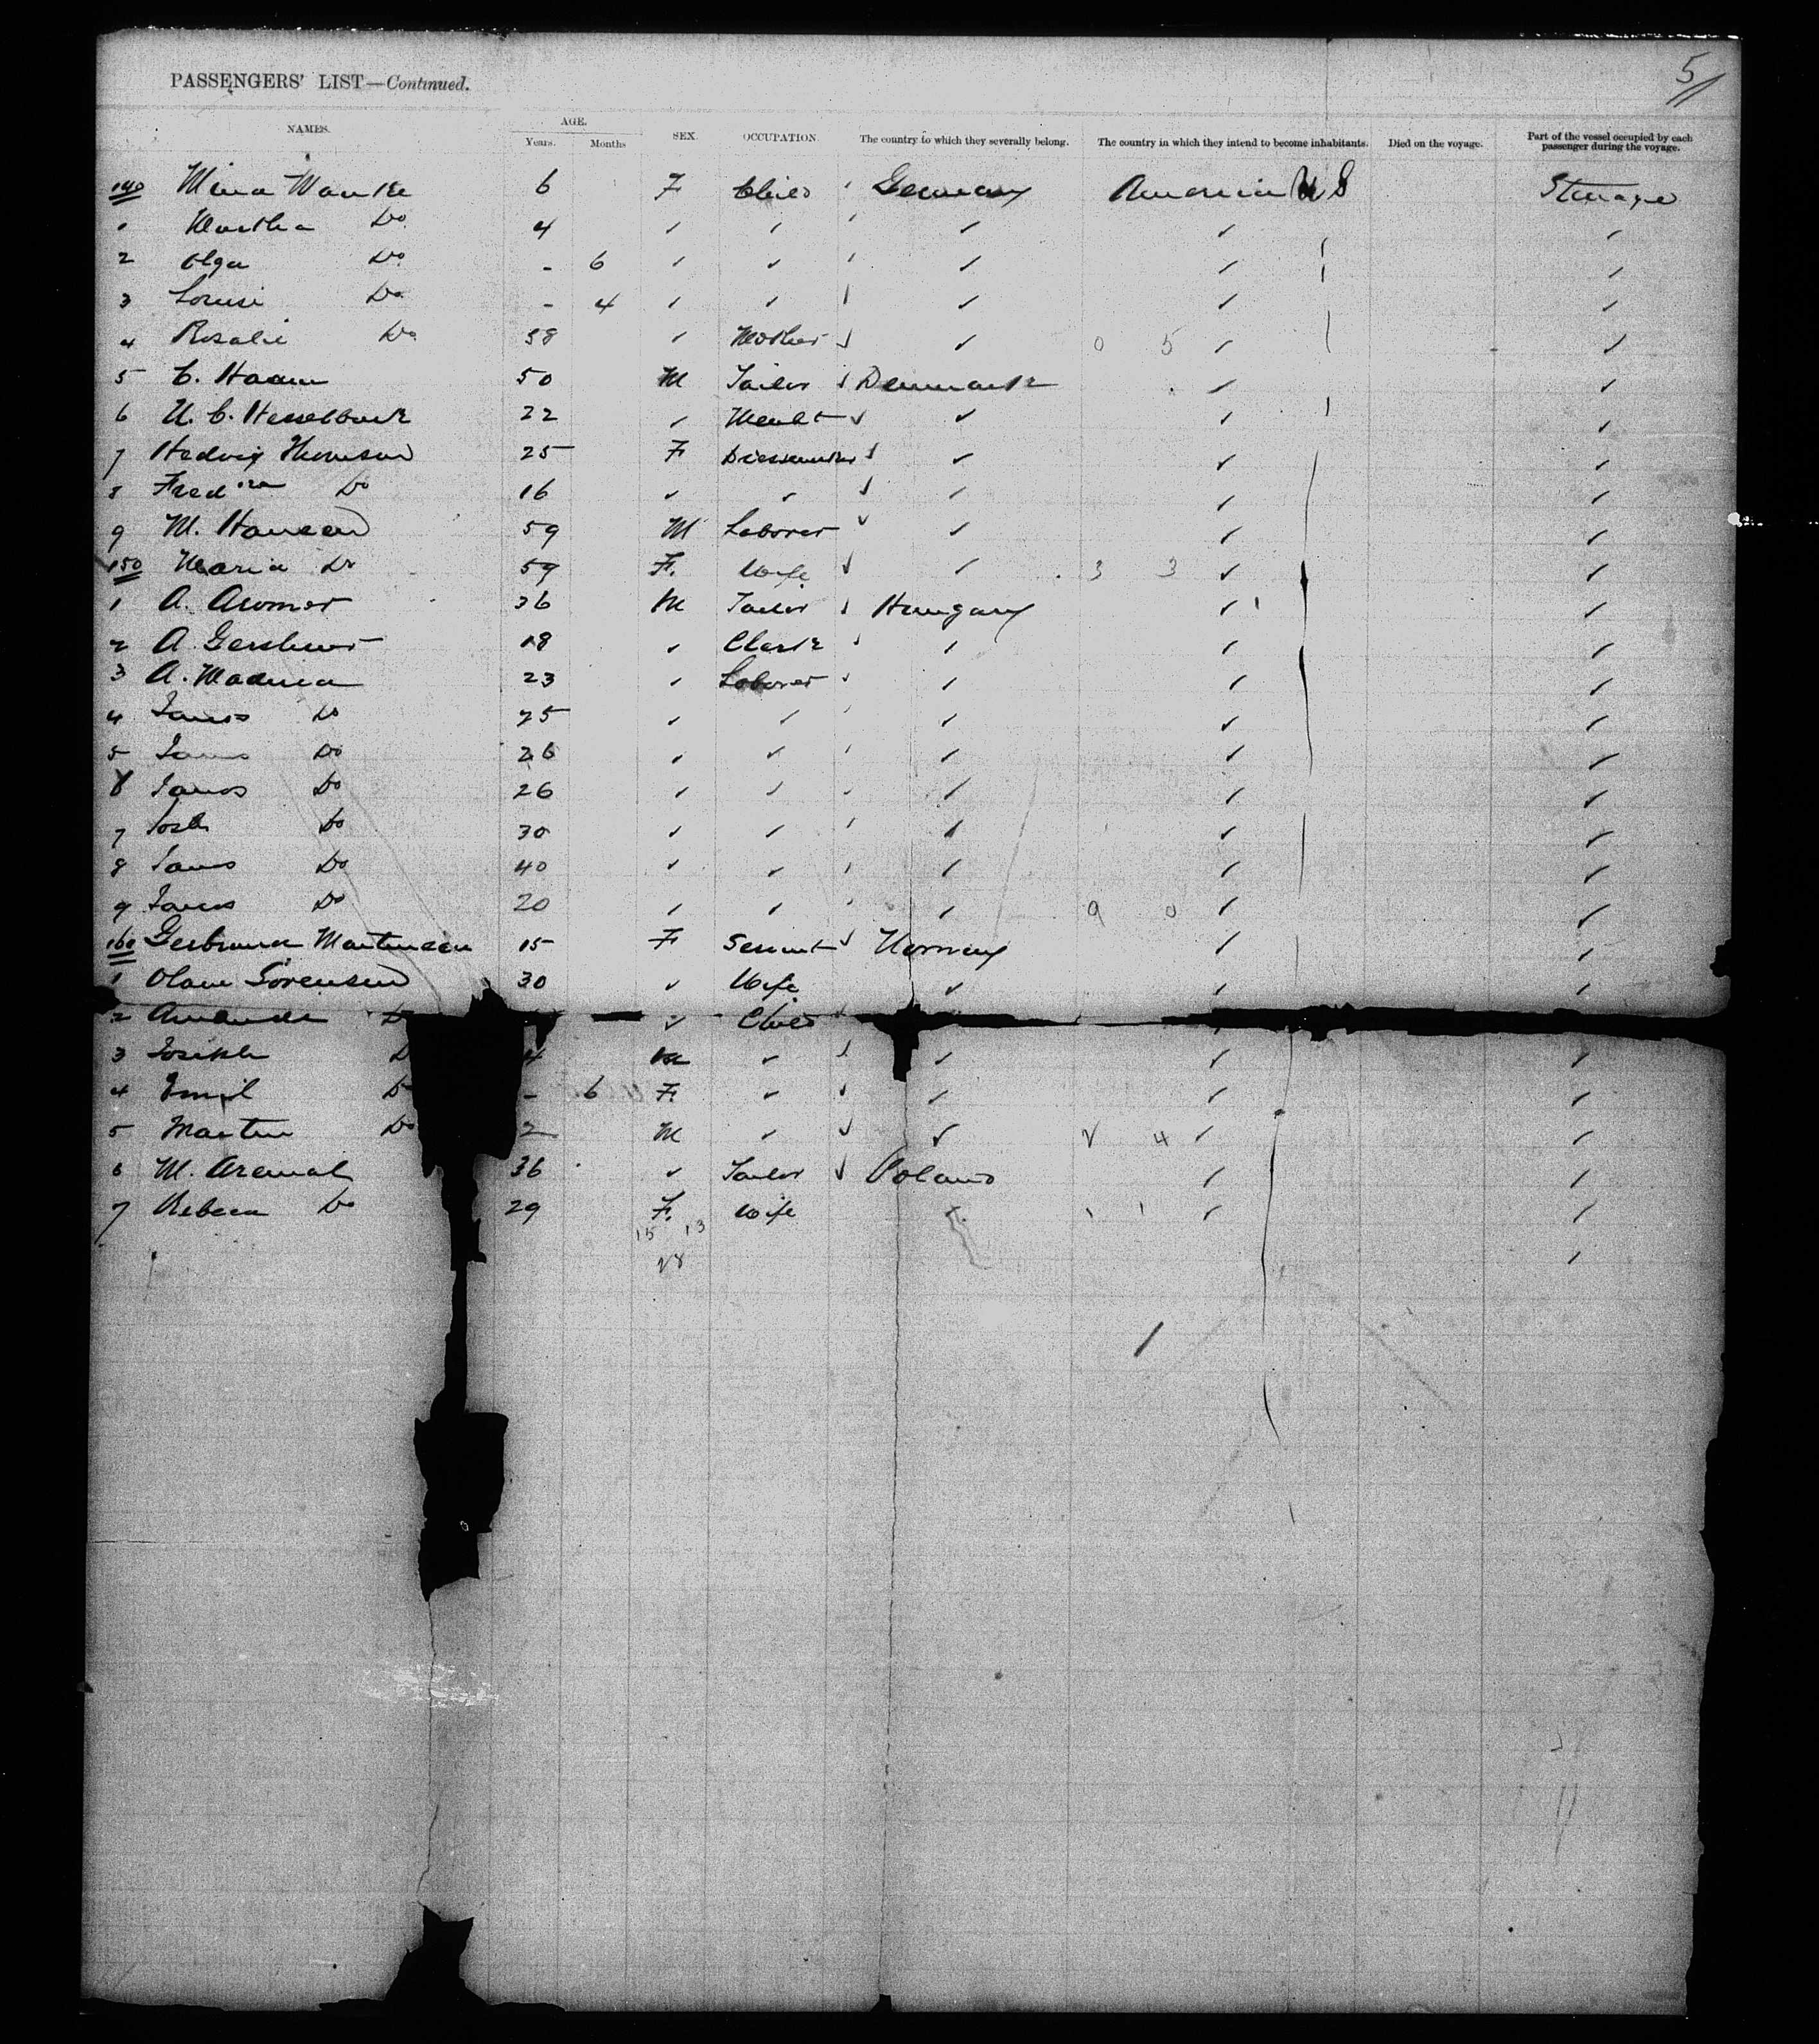 5
PASSENGERS' LIST—Continued.
NAMES. AGE. Years. Months SEX. OCCUPATION. The country to which they severally belong. The country in which they intend to become inhabitants. Died on the voyage. Part of the vessel occupied by each passenger during the voyage.
140 Mina Wanke 6 F Child Germany America U S Steerage
1 Martha Do 4 ✓ ✓ ✓ ✓ ✓
2 Olga Do - 6 ✓ ✓ ✓ ✓ ✓
3 Louisi Do - 4 ✓ ✓ ✓ ✓ ✓
4 Rosalie Do 38 ✓ Mother ✓ 0 5 ✓ ✓
5 C. Haam 50 M Tailor Denmark ✓ ✓
6 N. C. 22 ✓ ✓ ✓ ✓
7 Hedvig Thomsen 25 F Dressmaker ✓ ✓ ✓
8 Do 16 ✓ ✓ ✓ ✓ ✓
9 M. Hansen 59 M Laborer ✓ ✓ ✓
150 Maria Do 59 F. Wife ✓ 3 3 ✓ ✓
1 A. 36 M Tailor Hungary ✓ ✓
2 A. 18 ✓ Clerk ✓ ✓ ✓
3 A. 23 ✓ Laborer ✓ ✓ ✓
4 Janos Do 25 ✓ ✓ ✓ ✓ ✓
5 Janos Do 26 ✓ ✓ ✓ ✓ ✓
6 Janos Do 26 ✓ ✓ ✓ ✓ ✓
7 Do 30 ✓ ✓ ✓ ✓ ✓
8 Janos Do 40 ✓ ✓ ✓ ✓ ✓
9 Janos Do 20 ✓ ✓ ✓ 9 0 ✓ ✓
160 Martinsen 15 F Servant Norway ✓ ✓
1 Sörensen 30 ✓ Wife ✓ ✓ ✓
2 Amanda ✓ Child
3 Joseph 4 M ✓ ✓ ✓ ✓
4 Emil - 6 F. ✓ ✓ ✓ ✓
5 Martin Do 2 M ✓ ✓ 2 4 ✓ ✓
6 M. 36 ✓ Tailor Poland ✓ ✓
7 Rebeca Do 29 F. Wife ✓ 1 1 ✓ ✓
15 13
28